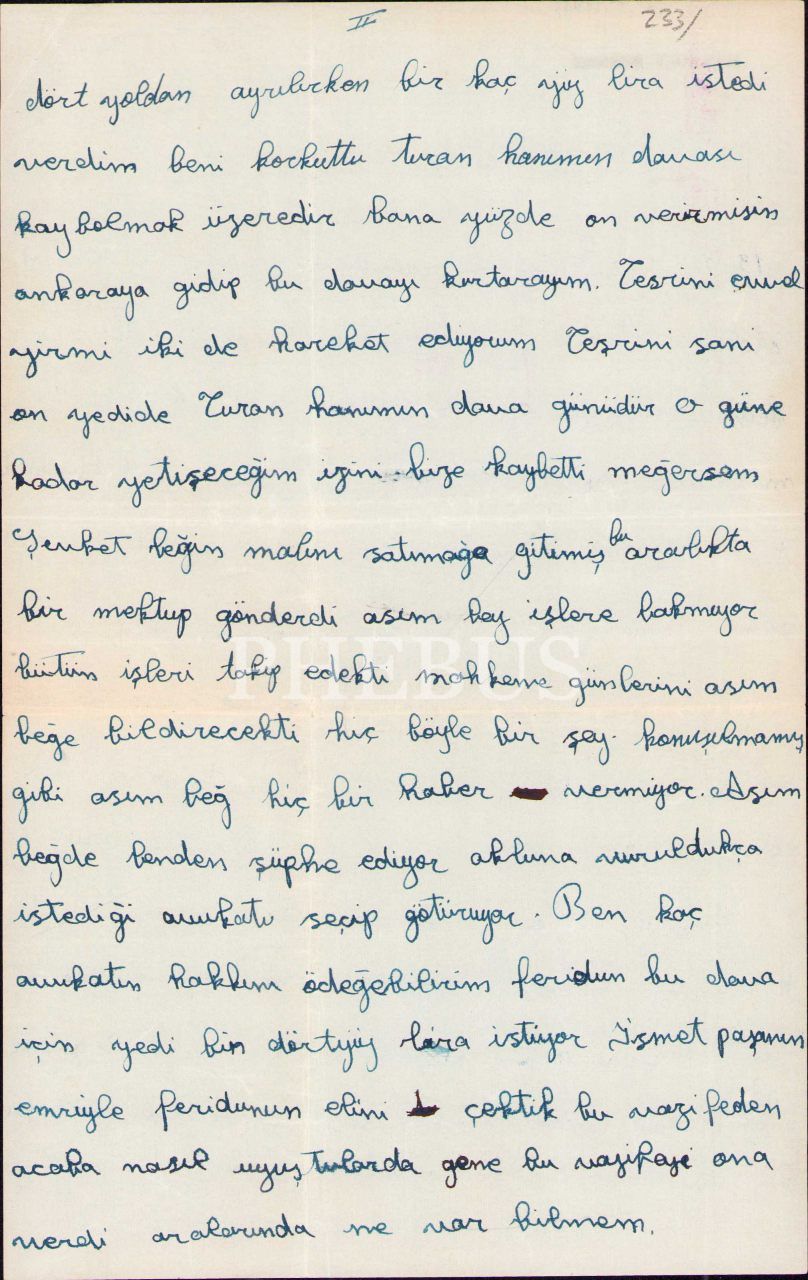 II
233/
dört yoldan ayrılırken bir kaç yüz lira istedi
verdim beni korkuttu turan hanımın davası
kaybolmak üzeredir bana yüzde on verirmisin
ankaraya gidip bu davayı kurtarayım. Teşrini evvel
yirmi iki de hareket ediyorum Teşrini sani
on yedide Turan hanımın dava günüdür o güne
kadar yetişeceğim izini bize kaybetti meğersem
Şevket beğin malını satımağa gitimiş bu aralıkta
bir mektup gönderdi asım bey işlere bakmıyor
bütün işleri takip edekti mahkeme günlerini asım
beğe bildirecekti hiç böyle bir şey konuşulmamış
gibi asım beğ hiç bir haber vermiyor. Asım
beğde benden şüphe ediyor aklına vuruldukça
istediği avukatı seçip götürüyor. Ben kaç
avukatın hakkını ödeğebilirim feridun bu dava
için yedi bin dörtyüz lira istiyor İsmet paşanın
emriyle feridunun elini çektik bu vazifeden
acaba nasıl uyuştularda gene bu vazifeyi ona
verdi aralarında ne var bilmem.
PHEBUS